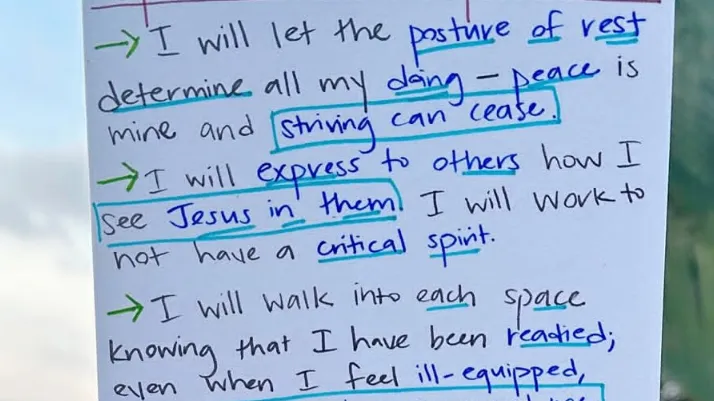 → I will let the posture of rest
determine all my doing - peace is
mine and striving can cease.
→ I will express to others how I
see Jesus in them. I will work to
not have a critical spirit.
→ I will walk into each space
knowing that I have been readied;
even when I feel ill-equipped,